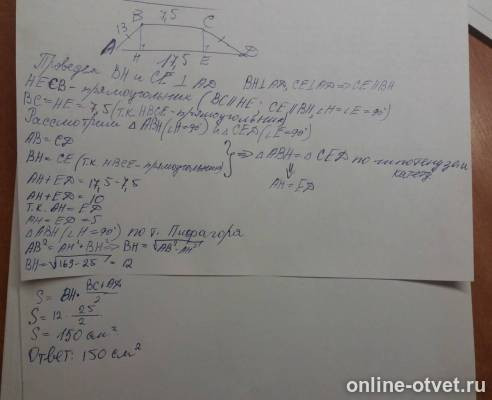 B 7,5 C
13
A H 17,5 E D
Проведем BH и CE ⊥ AD
BH⊥AD, CE⊥AD ⇒ CE||BH
HECB - прямоугольник (BC||HE; CE||BH, ∠H=∠E=90°)
BC=HE=7,5 (т.к. HBCE - прямоугольник)
Рассмотрим △ABH (∠H=90°) и △CED (∠E=90°)
AB=CD
BH=CE (т.к. HBCE - прямоугольник) } ⇒ △ABH=△CED по гипотенузе и
катету
⇓
AH=ED
AH+ED=17,5-7,5
AH+ED=10
т.к. AH=ED
AH=ED=5
△ABH (∠H=90°) по т. Пифагора
AB²=AH²+BH² ⇒ BH=√AB²-AH²
BH=√169-25 = 12
S= BH· BC+AD/2
S= 12 · 25/2
S= 150 см²
Ответ: 150 см²
online-otvet.ru